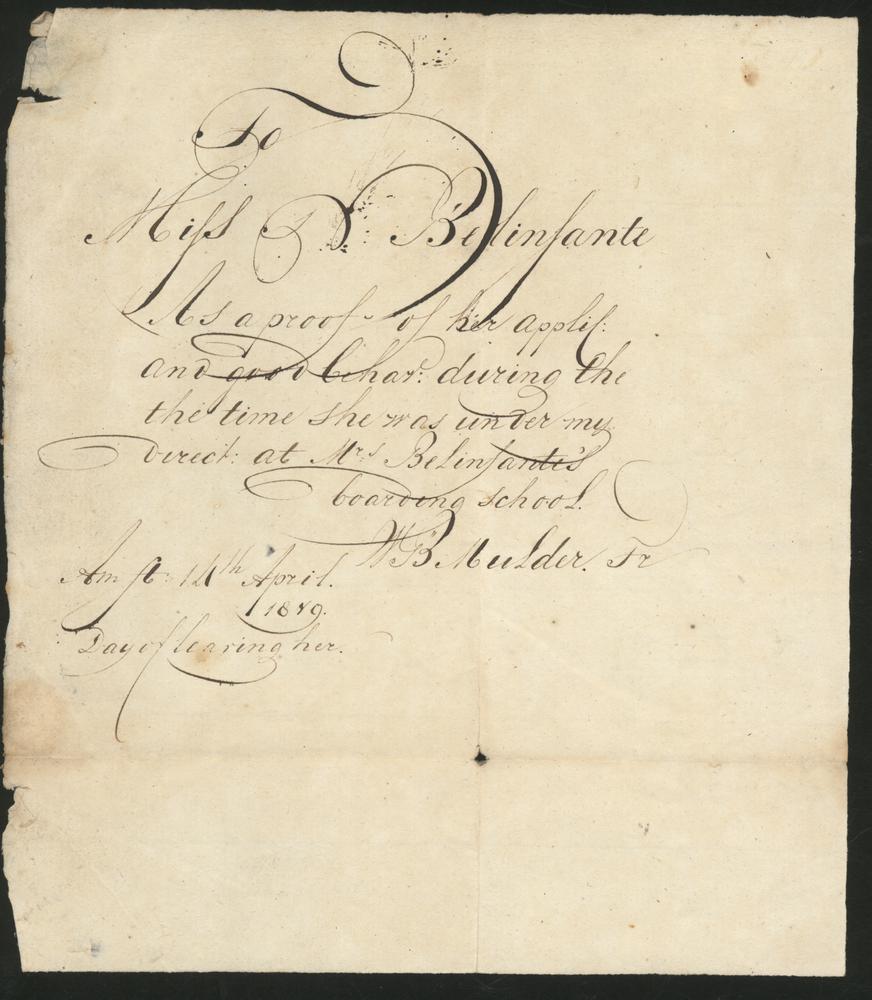 To
Miss S Belinfante
As a proof of her applis:
and good behav: during the
the time she was under my
direct: at Mrs Belinfante's
boarding school.
WB Mulder. Jr
Amst: 14th April.
1819.
Day of learing her.